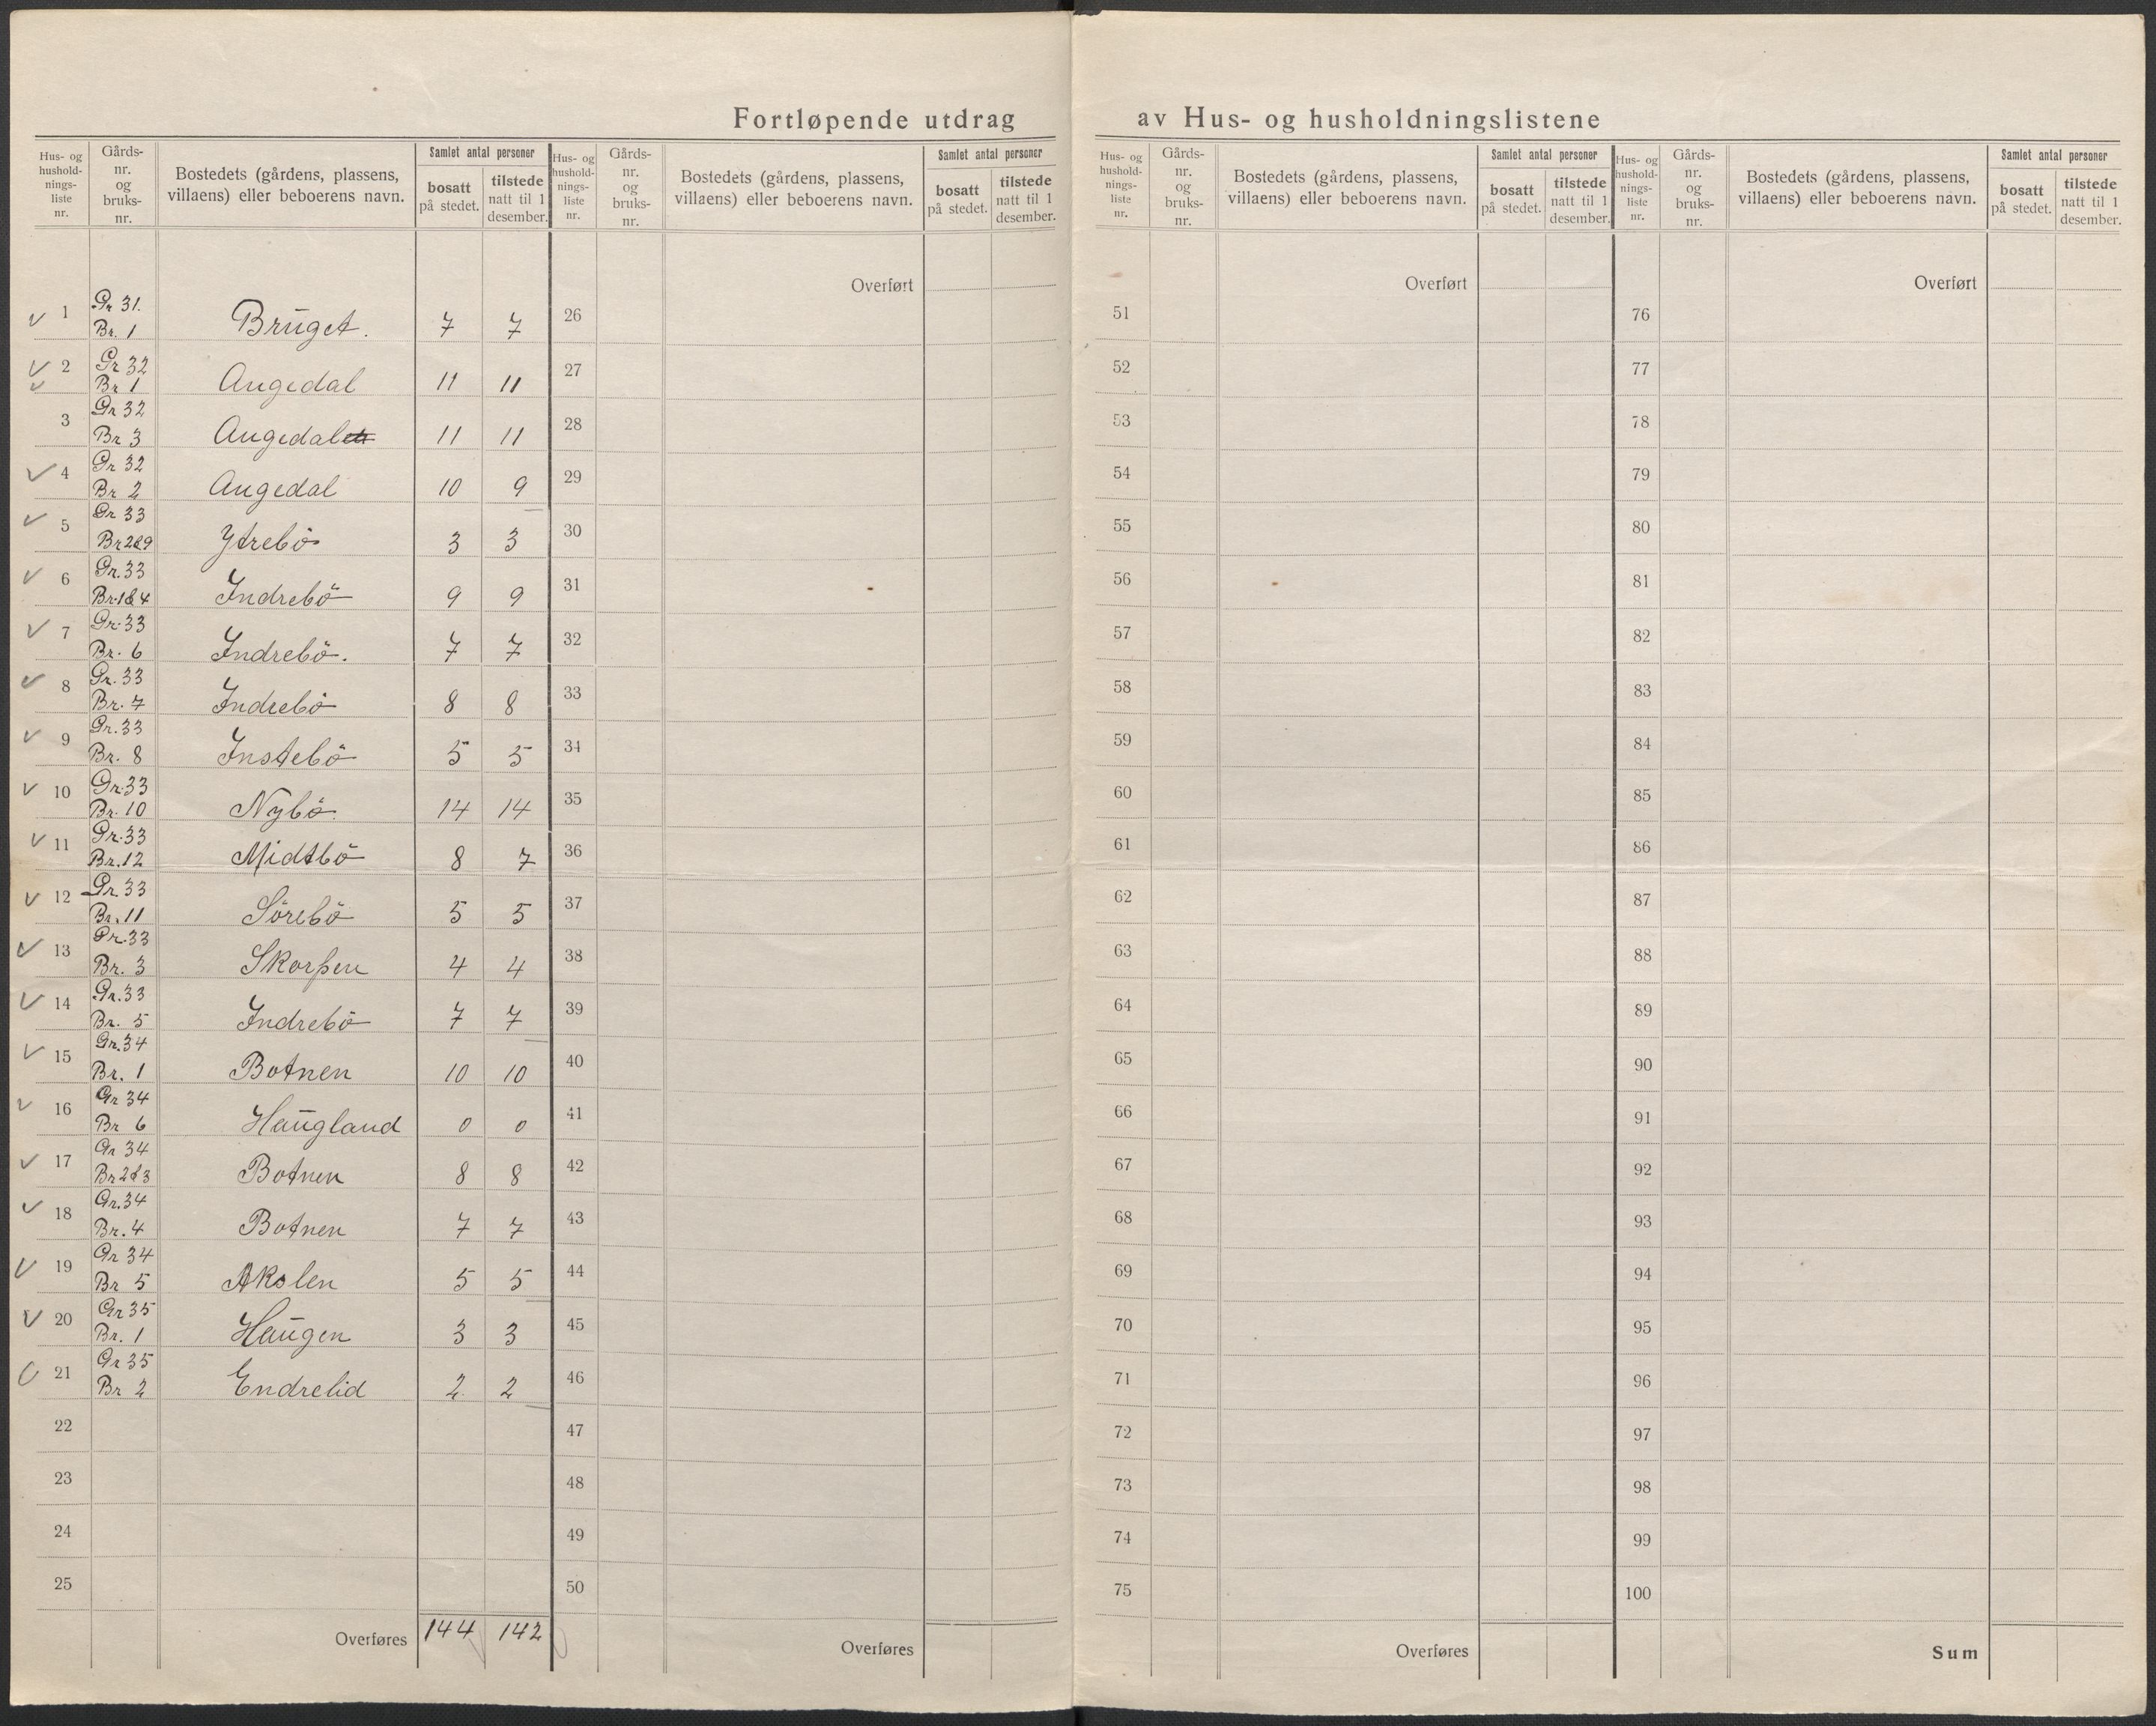 Fortløpende utdrag av Hus- og husholdningslistene
Hus- og hushold-nings-liste nr. | Gårds-nr. og bruks-nr. | Bostedets (gårdens, plassens, villaens) eller beboerens navn. | Samlet antal personer | bosatt på stedet. | tilstede natt til 1 desember.
1 | Gr 31. Br. 1 | Bruget. | 7 | 7
2 | Gr 32 Br 1 | Angedal | 11 | 11
3 | Gr 32 Br 3 | Angedal | 11 | 11
4 | Gr 32 Br 2 | Angedal | 10 | 9
5 | Gr 33 Br 2&9 | Ytrebö | 3 | 3
6 | Gr. 33 Br. 1&4 | Indrebö | 9 | 9
7 | Gr. 33 Br. 6 | Indrebö. | 7 | 7
8 | Gr. 33 Br. 7 | Indrebö | 8 | 8
9 | Gr. 33 Br. 8 | Instebö | 5 | 5
10 | Gr. 33 Br. 10 | Nybö | 14 | 14
11 | Gr. 33 Br. 12 | Midtbö | 8 | 7
12 | Gr 33 Br. 11 | Sörebö | 5 | 5
13 | Gr. 33 Br. 3 | Skorpen | 4 | 4
14 | Gr. 33 Br. 5 | Indrebö | 7 | 7
15 | Gr. 34 Br. 1 | Botnen | 10 | 10
16 | Gr 34 Br 6 | Haugland | 0 | 0
17 | Gr 34 Br 2&3 | Botnen | 8 | 8
18 | Gr. 34 Br. 4 | Botnen | 7 | 7
19 | Gr 34 Br 5 | Akslen | 5 | 5
20 | Gr 35 Br. 1 | Haugen | 3 | 3
21 | Gr 35 Br 2 | Endrelid | 2 | 2
22
23
24
25
Overføres | 144 | 142
Hus- og hushold-nings-liste nr. | Gårds-nr. og bruks-nr. | Bostedets (gårdens, plassens, villaens) eller beboerens navn. | Samlet antal personer | bosatt på stedet. | tilstede natt til 1 desember.
Overført
26
27
28
29
30
31
32
33
34
35
36
37
38
39
40
41
42
43
44
45
46
47
48
49
50
Overføres
Hus- og hushold-nings-liste nr. | Gårds-nr. og bruks-nr. | Bostedets (gårdens, plassens, villaens) eller beboerens navn. | Samlet antal personer | bosatt på stedet. | tilstede natt til 1 desember.
Overført
51
52
53
54
55
56
57
58
59
60
61
62
63
64
65
66
67
68
69
70
71
72
73
74
75
Overføres
Hus- og hushold-nings-liste nr. | Gårds-nr. og bruks-nr. | Bostedets (gårdens, plassens, villaens) eller beboerens navn. | Samlet antal personer | bosatt på stedet. | tilstede natt til 1 desember.
Overført
76
77
78
79
80
81
82
83
84
85
86
87
88
89
90
91
92
93
94
95
96
97
98
99
100
Sum